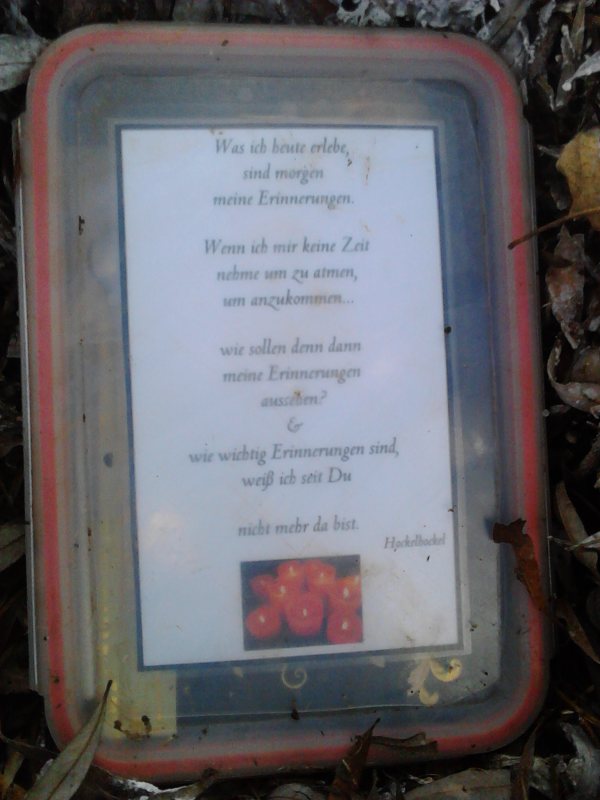 Was ich heute erlebe,
sind morgen
meine Erinnerungen.
Wenn ich mir keine Zeit
nehme um zu atmen,
um anzukommen...
wie sollen denn dann
meine Erinnerungen
aussehen?
&
wie wichtig Erinnerungen sind,
weiß ich seit Du
nicht mehr da bist.
Hockelbockel